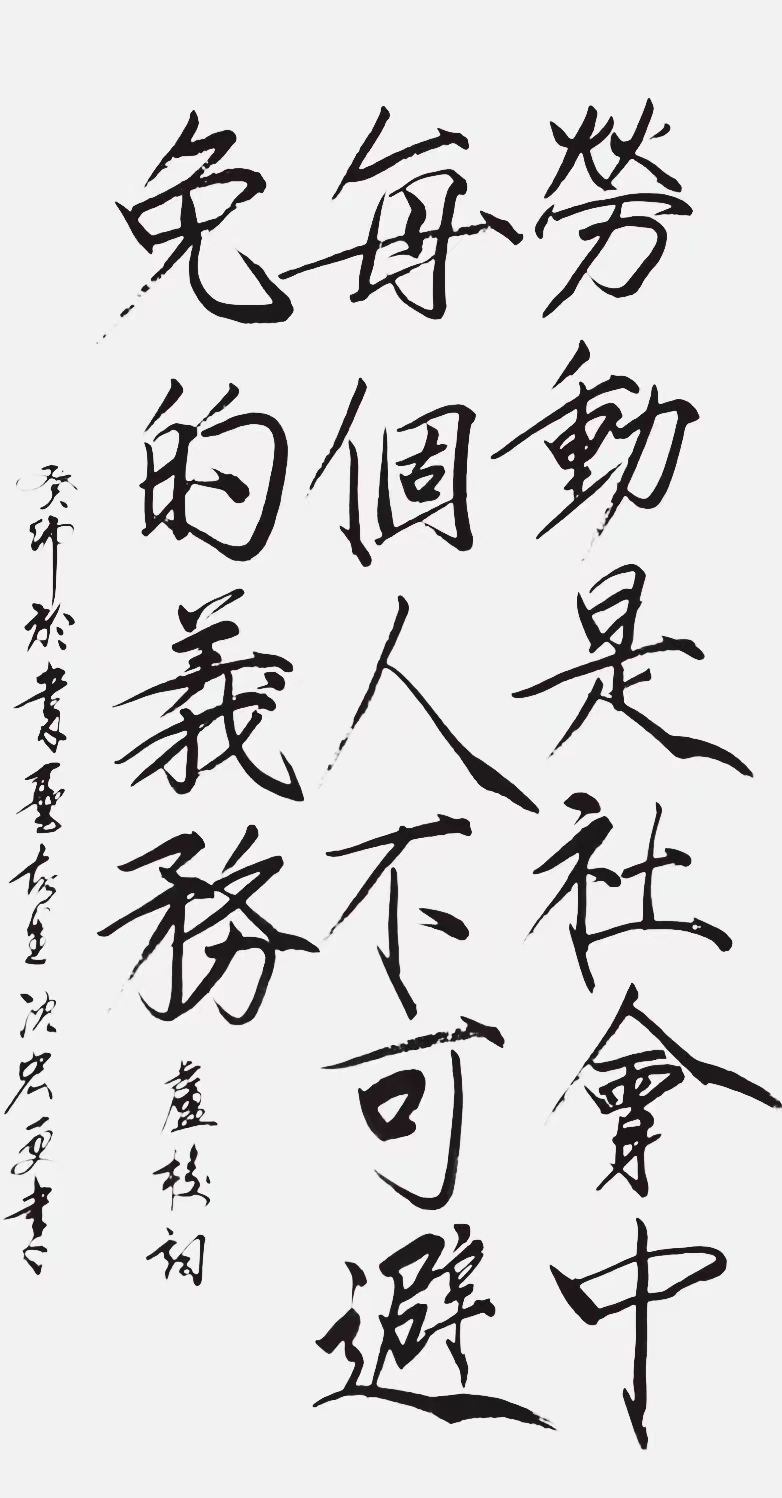 勞動是社會中
每個人不可避
免的義務
盧梭詞
癸卯於書聖故里沈宏更書